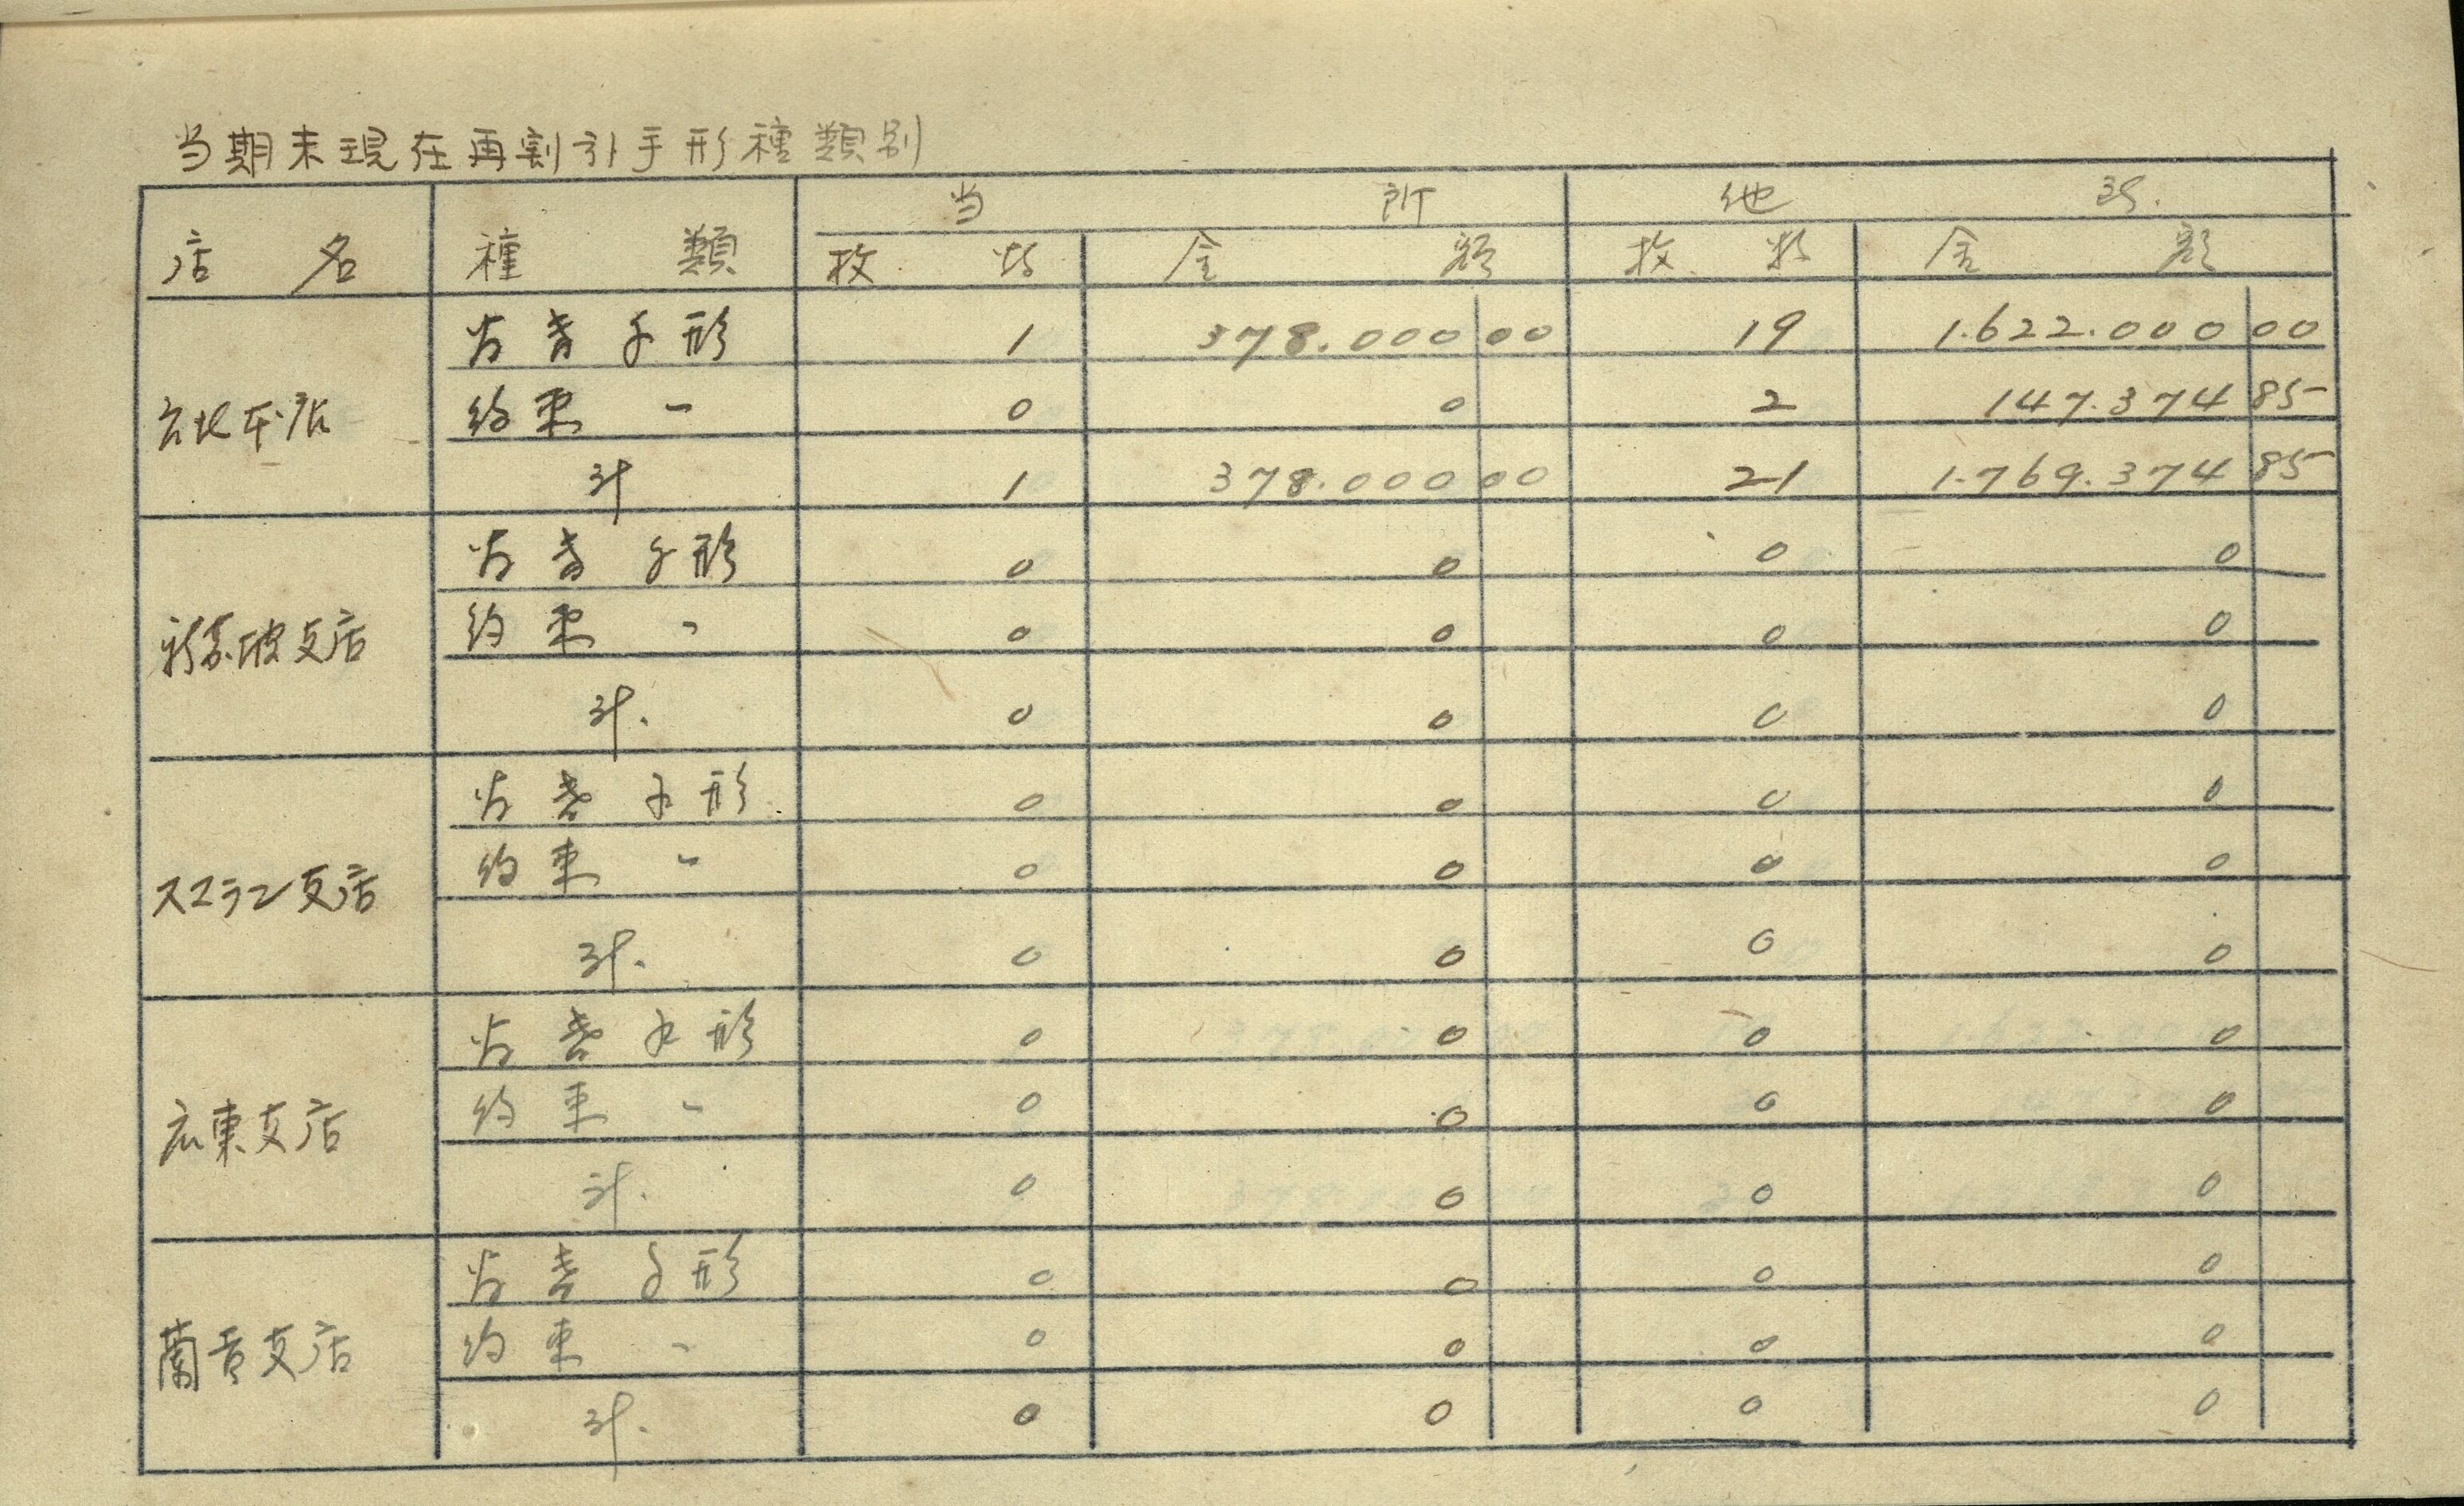 当期末現在再割引手形種類別
店名 種類 当所 他所
枚数 金額 枚数 金額
為替手形 1 378.000 00 19 1.622.000 00
台北本店 約束〃 0 0 2 147.374 85
計 1 378.000 00 21 1.769.374 85
為替手形 0 0 0 0
新嘉坡支店 約束〃 0 0 0 0
計. 0 0 0 0
為替手形 0 0 0 0
スマラン支店 約束〃 0 0 0 0
計. 0 0 0 0
為替手形 0 0 0 0
広東支店 約束〃 0 0 0 0
計. 0 0 0 0
為替手形 0 0 0 0
蘭貢支店 約束〃 0 0 0 0
計. 0 0 0 0